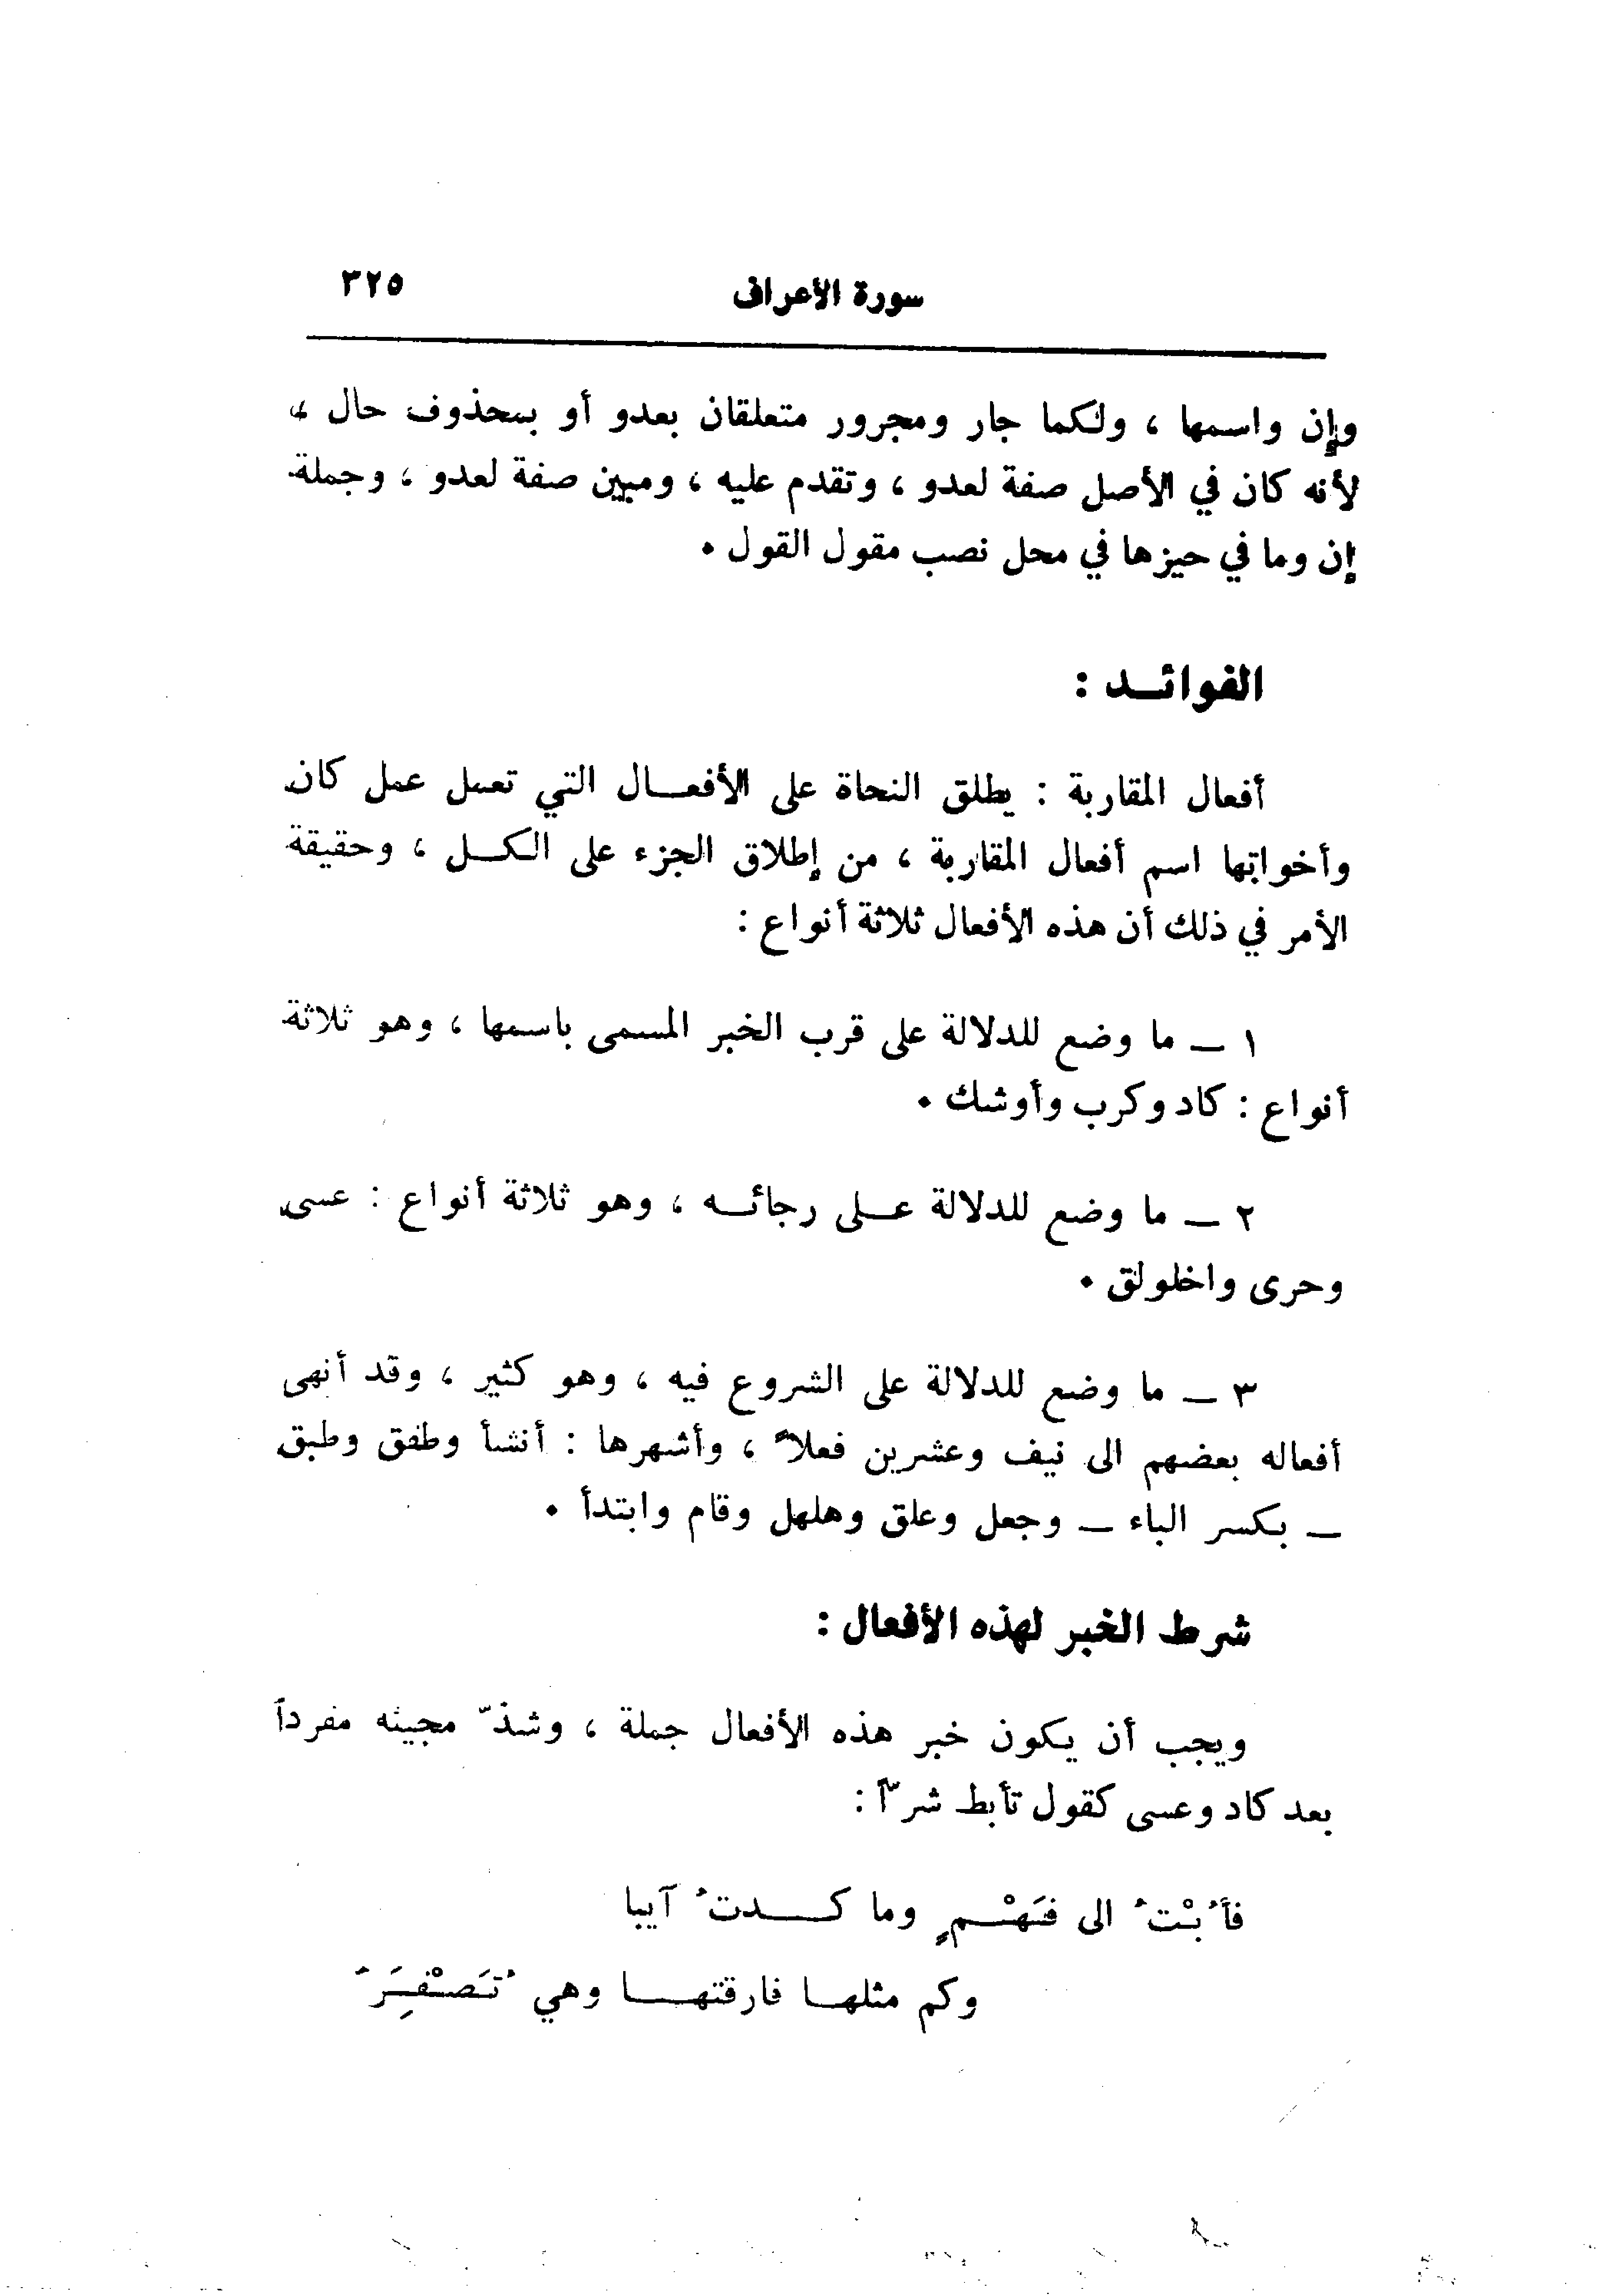 سورة الأعراف ٣٢٥
وإن واسمها ، ولكما جار ومجرور متعلقان بعدو أو بمحذوف حال ،
لأنه كان في الأصل صفة لعدو ، وتقدم عليه ، ومبين صفة لعدو ، وجملة
إن وما في حيزها في محل نصب مقول القول .
الفوائـد :
أفعال المقاربة : يطلق النحاة على الأفعـال التي تعمل عمل كان
وأخواتها اسم أفعال المقاربة ، من إطلاق الجزء على الكـل ، وحقيقة
الأمر في ذلك أن هذه الأفعال ثلاثة أنواع :
١ ــ ما وضع للدلالة على قرب الخبر المسمى باسمها ، وهو ثلاثة
أنواع : كاد وكرب وأوشك .
٢ ــ ما وضع للدلالة عـلى رجائـه ، وهو ثلاثة أنواع : عسى
وحرى واخلولق .
٣ ــ ما وضع للدلالة على الشروع فيه ، وهو كثير ، وقد أنهى
أفعاله بعضهم الى نيف وعشرين فعلاً ، وأشهرها : أنشأ وطفق وطبق
ــ بكسر الباء ــ وجعل وعلق وهلهل وقام وابتدأ .
شرط الخبر لهذه الأفعال :
ويجب أن يكون خبر هذه الأفعال جملة ، وشذّ مجيئه مفرداً
بعد كاد وعسى كقول تأبط شرّاً :
فأُبْتُ الى فَهْـمٍ وما كـــدتُ آيبا
وكم مثلهـا فارقتهـــا وهي تَصْفِرَُ